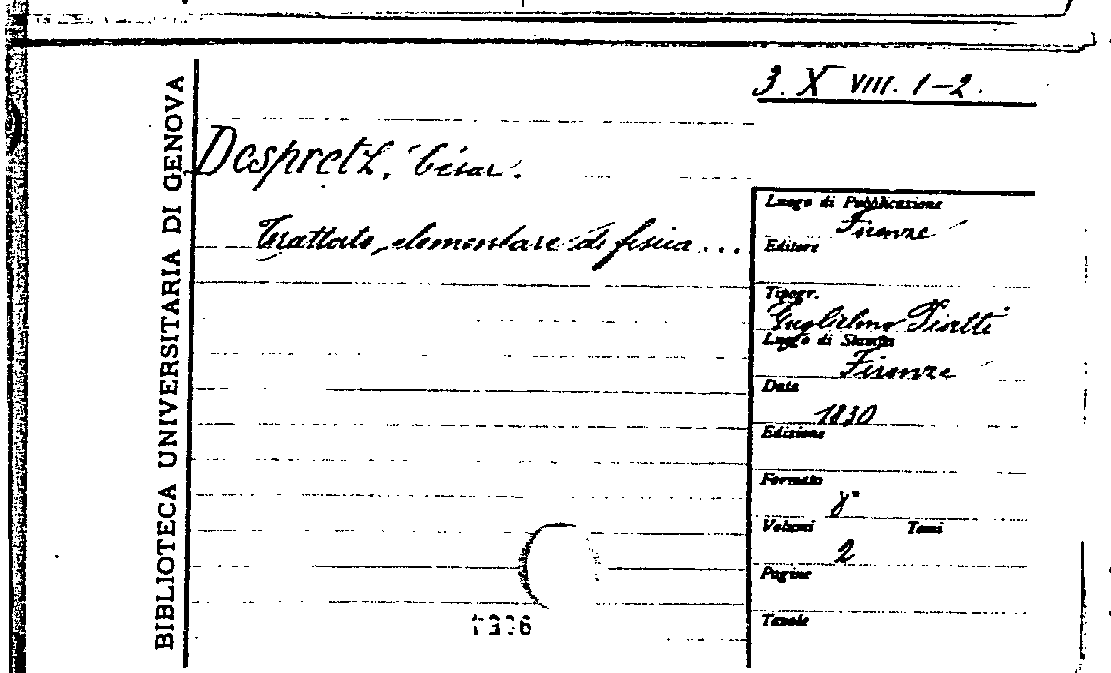 BIBLIOTECA UNIVERSITARIA DI GENOVA
3. X VIII. 1-2.
Despretz, César.
Trattato elementare di fisica ...
Luogo di Pubblicazione
Firenze
Editore
Tipogr.
Guglielmo Piatti
Luogo di Stampa
Firenze
Data
1830
Edizione
Formato
8°
Volumi Tomi
2
Pagine
Tavole